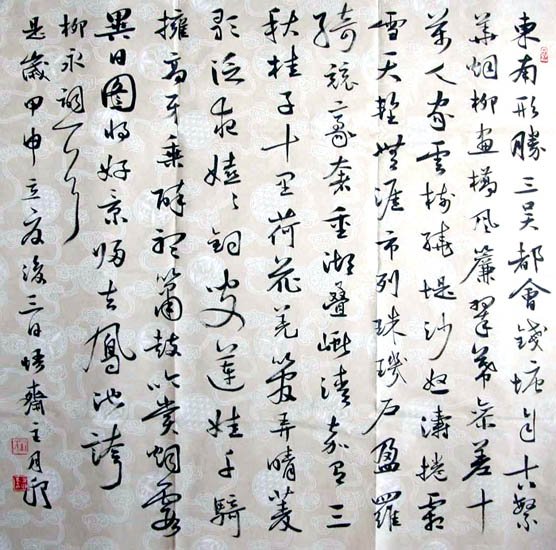 東南形勝三吳都會錢塘自古繁
華烟柳畫橋風簾翠幕參差十
萬人家雲樹繞堤沙怒濤捲霜
雪天塹無涯市列珠璣户盈羅
綺競豪奢重湖疊巘清嘉有三
秋桂子十里荷花羌管弄晴菱
歌泛夜嬉〻釣叟蓮娃千騎
擁高牙乘醉聽簫鼓吟賞烟霞
異日圖將好景歸去鳳池誇
柳永詞
是歲甲申立夏後三日悟齋主月